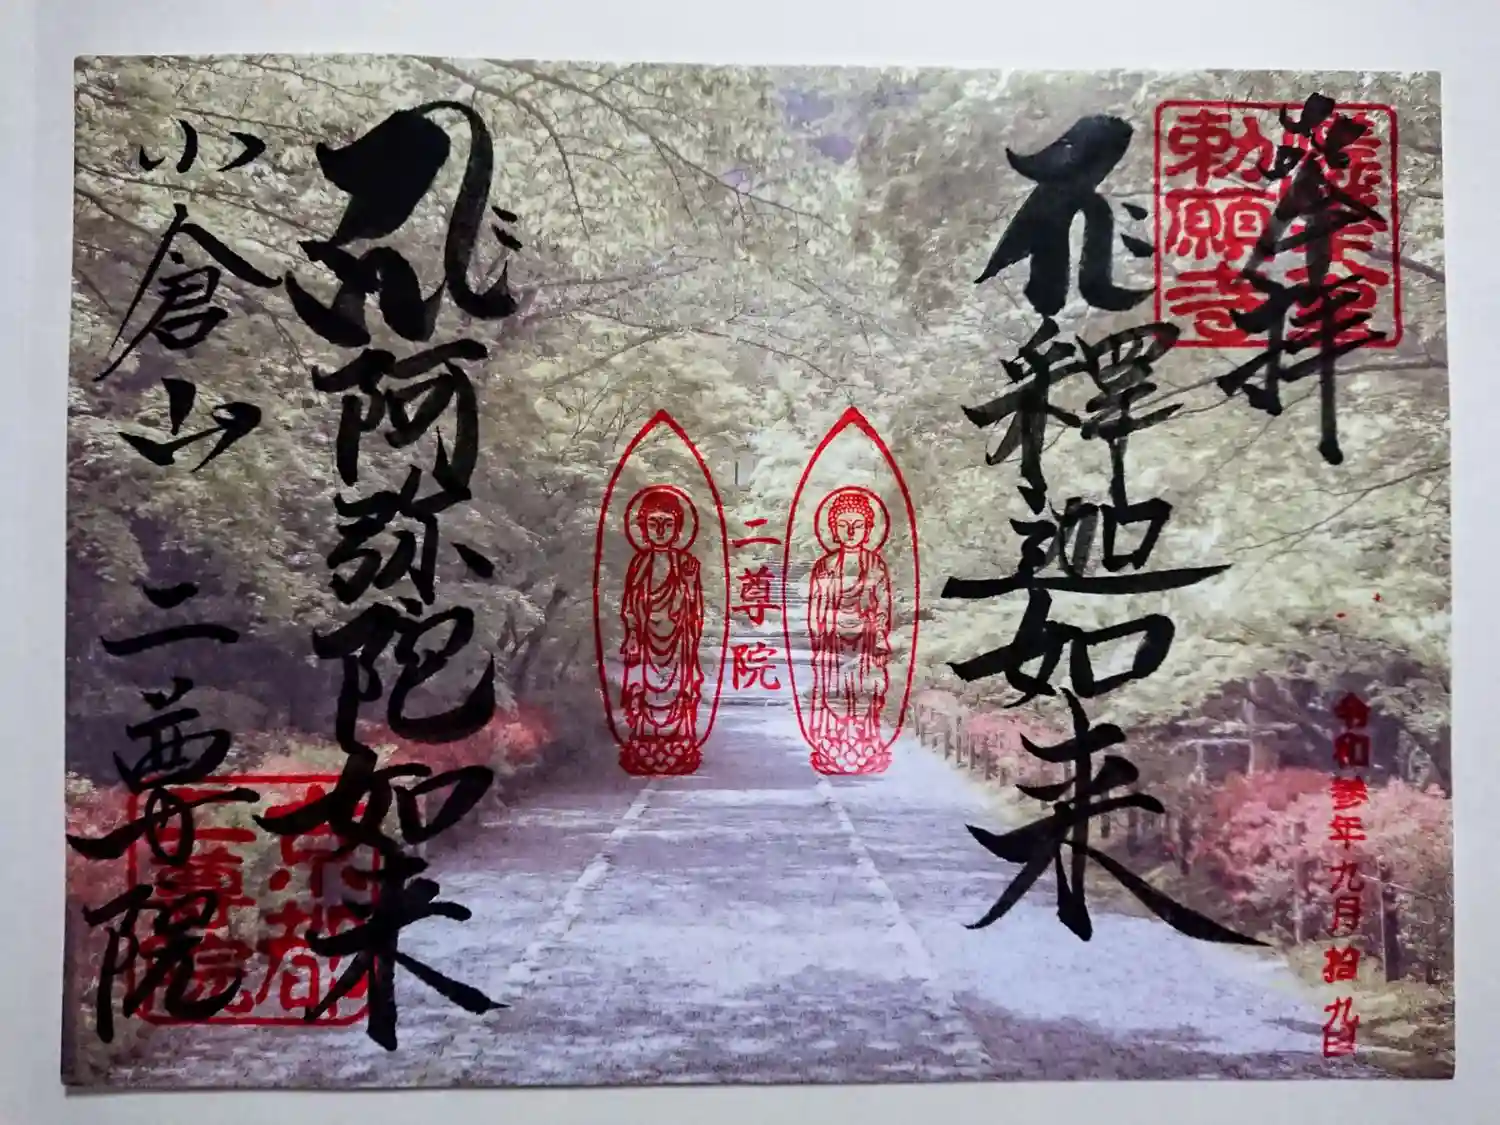 奉拝
勅願寺
釋迦如来
二尊院
阿弥陀如来
小倉山 二尊院
京都
二尊院
令和参年九月拾九日